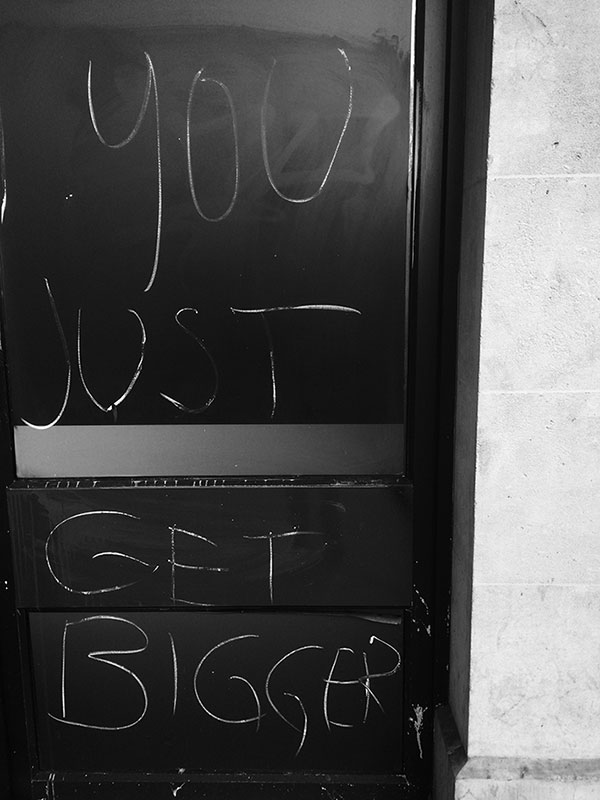 YOU
JUST
GET
BIGGER